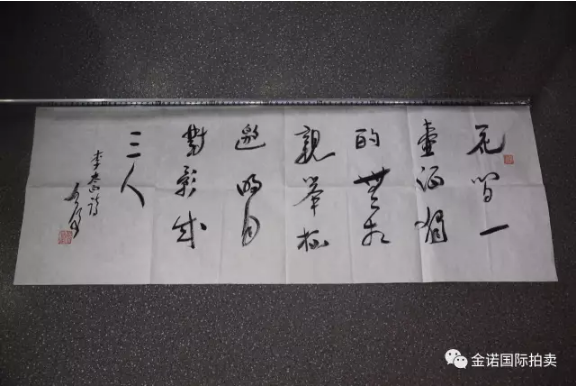 花间一
壶酒独
酌無相
親举杯
邀明月
對影成
三人
李白诗
金诺国际拍卖